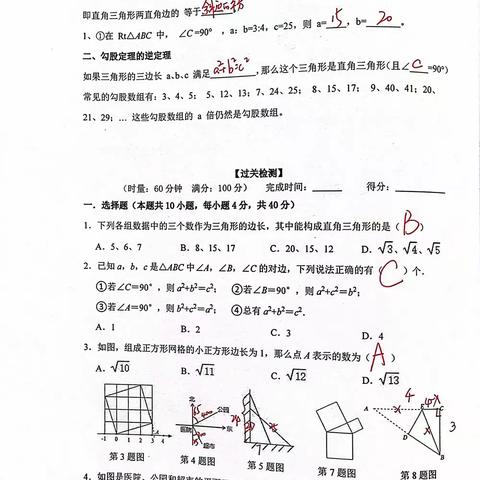 即直角三角形两直角边的 等于
1、①在 Rt△ABC 中， ∠C=90° ，a：b=3:4，c=25，则 a= 15 ，b= 20 。
二、勾股定理的逆定理
如果三角形的三边长 a、b、c 满足 a²+b²=c² ，那么这个三角形是直角三角形(且∠ C =90°)
常见的勾股数组有：3、4、5； 5、12、13；7、24、25； 8、15、17； 9、40、41；20、
21、29；… 这些勾股数组的 a 倍仍然是勾股数组。
【过关检测】
(时量：60 分钟 满分：100 分) 完成时间：______ 得分：______
一．选择题（本题共 10 小题，每小题 4 分，共 40 分）
1．下列各组数据中的三个数作为三角形的边长，其中能构成直角三角形的是（ B ）
A．5、6、7 B．8、15、17 C．20、15、12 D．√3、√4、√5
2．已知 a，b，c 是△ABC 中∠A，∠B，∠C 的对边，下列说法正确的有（ C ）个．
①若∠C=90° ，则 a²+b²=c²； ②若∠B=90° ，则 a²+c²=b²；
③若∠A=90° ，则 b²+c²=a²； ④总有 a²+b²=c²．
A．1 B．2 C．3 D．4
3．如图，组成正方形网格的小正方形边长为 1，那么点 A 表示的数为（ A ）
A．√10 B．√11 C．√12 D．√13
北 公园 东 医院 超市
第 3 题图 第 4 题图 第 5 题图 第 7 题图 第 8 题图
4．如图是医院、公园和超市的平面